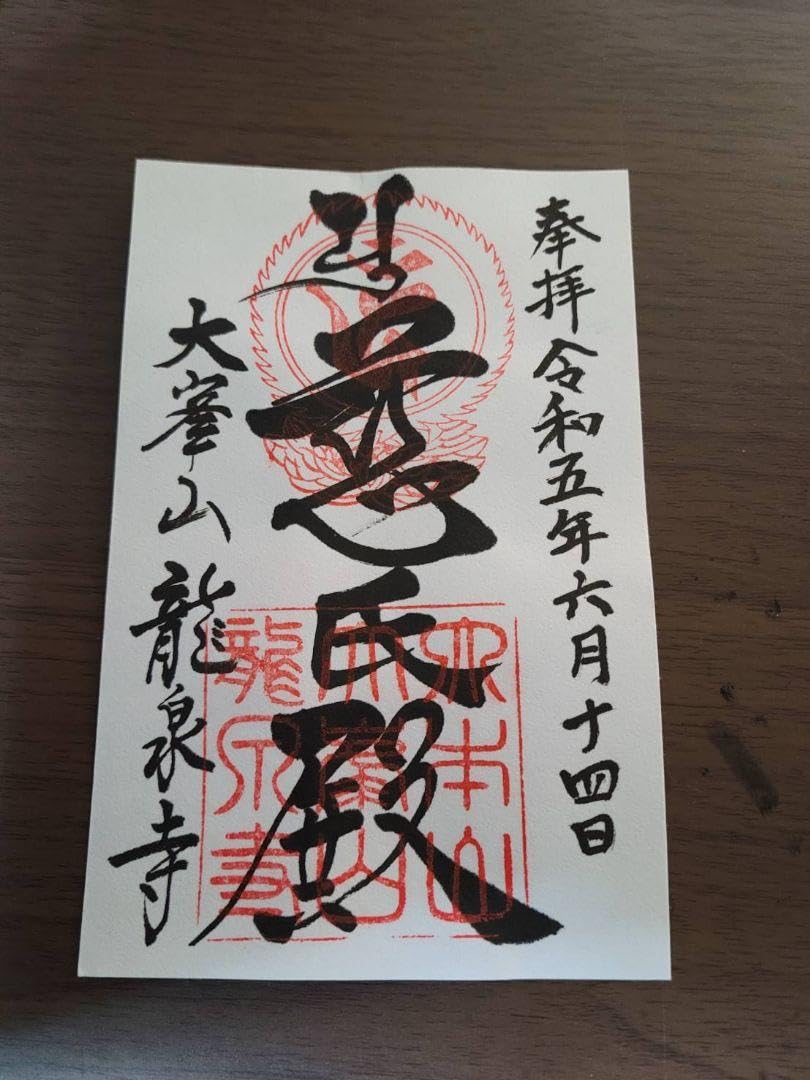 奉拝 令和五年六月十四日
慈氏殿
大峯山 龍泉寺
大本山
大峯山
龍泉寺